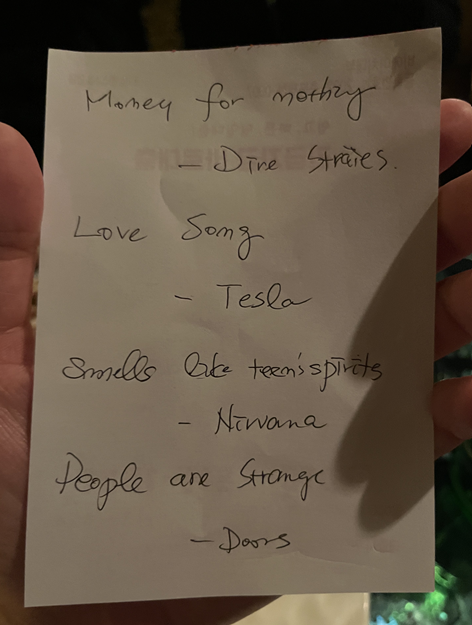 Money for nothing
– Dire Straies.
Love Song
– Tesla
Smells like teen's spirits
– Nirvana
People are Strange
– Doors